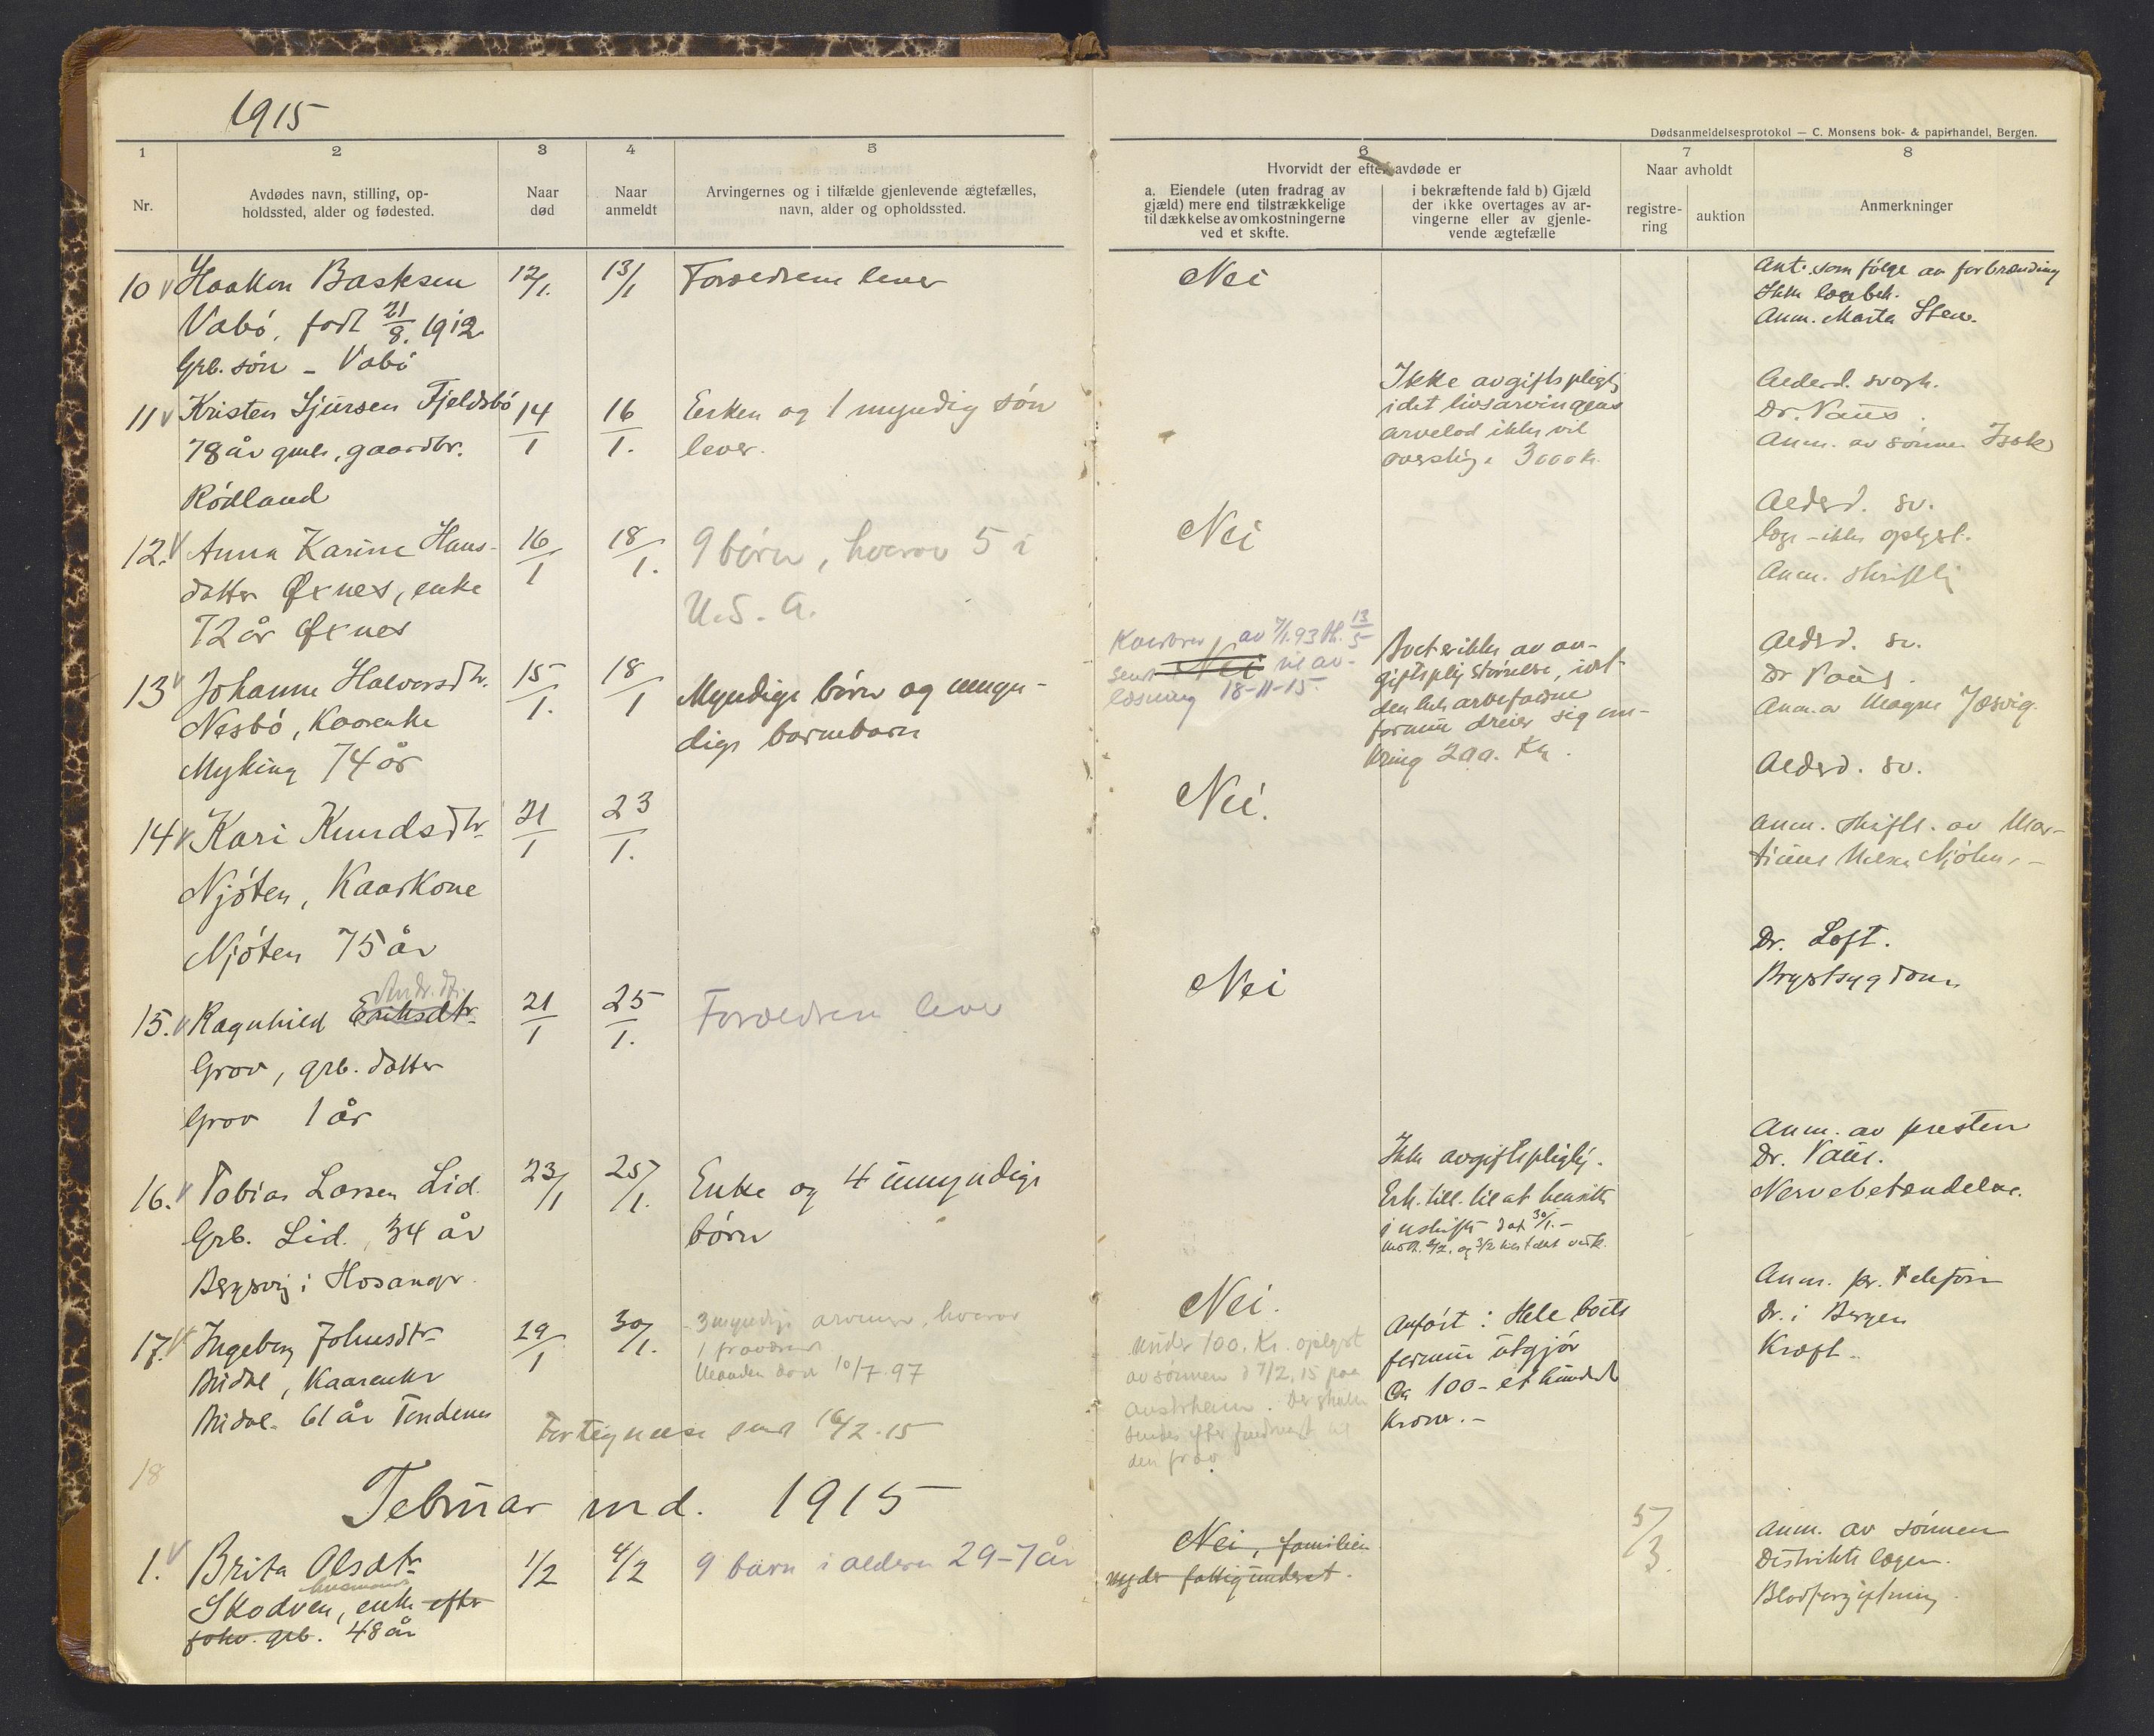 1915
Dødsanmeldelsesprotokol — C. Monsens bok- & papirhandel, Bergen.
1
2
3
4
5
6
7
8
Nr.
Avdødes navn, stilling, op-
holdssted, alder og fødested.
Naar
død
Naar
anmeldt
Arvingernes og i tilfælde gjenlevende ægtefælles,
navn, alder og opholdssted.
Hvorvidt der efter avdøde er
a. Eiendele (uten fradrag av
gjæld) mere end tilstrækkelige
til dækkelse av omkostningerne
ved et skifte.
i bekræftende fald b) Gjæld
der ikke overtages av ar-
vingerne eller av gjenle-
vende ægtefælle
Naar avholdt
registre-
ring
auktion
Anmerkninger
10 Haakon Vabó, født 21/8. 1912
Grb. søn - Vabó
12/1.
13/1
Forældrene lever
Nei
som følge av forbrænding
Anm. Marta
11 Kristen Sjursen Fjeldsbó
78 år gml, gaardbr.
Ródland
14/1
16/1.
Enken og 1 myndig søn
lever.
Ikke avgiftspligtig
idet livsarvingens
arvelod ikke vil
overstige 3000 k.
Alderd. svagh.
Dr. Paus.
Anm. av sønnen Isak
12. Anna Karine Hans-
datter Øxnes, enke
72 år Øxnes
16/1
18/1.
9 børn, hvorav 5 i
U.S.A.
Nei
Alderd. sv.
læge - ikke oplyst.
Anm. skriftlig
13 Johanne Halvorsdtr.
Nesbó, Kaarenke
Myking 74 år
15/1.
18/1
Myndige børn og umyn-
dige barnebarn
Nei
av 7/1.93
13/5
sendt til av-
læsning 18-11-15.
Boet er ikke av av-
giftspligtig størrelse, idet
formue dreier sig om-
kring 200. Kr.
Alderd. sv.
Dr Paus.
Anm. av Magne
14 Kari Knudsdtr
Njøten, Kaarkone
Njøten 75 år
21/1
23/1.
Nei.
Alderd. sv.
Anm. skriftl. av Mar-
tinus Nilsen Njøten
15. Ragnhild Eriksdtr.
Grov, grb. datter
Grov 1 år
21/1
25/1.
Forældrene lever
Nei
Dr. Loft.
Brystsygdom
16. Tobias Larsen Lid.
Grb. Lid. 34 år
i Hosanger.
23/1
25/1.
Enke og 4 umyndige
børn
Ikke avgiftspligtig.
Erk. till. til at hensitte
i uskifte dat 30/1.-
Anm. av presten
Dr. Paus.
Nervebetændelse.
17. Ingeborg Johnsdtr
Kaarenke
61 år
29/1
30/1.
3 myndige arvinger, hvorav
1 fraværende
Manden død 10/7.97
Fortegnelse sendt 16/2.15
Nei.
Under 100. Kr. oplyst
av sønnen d 7/2.15 paa
Austrheim. Der skal
sendes
den frav
Anført: Hele boets
formue utgjør
Ca 100- et hundrede
Kroner.-
Anm. pr. telefon
Dr. i Bergen
Kræft.
18
Februar md. 1915
1. Brita Olsdtr
husmands
Skodven, enke efter
grb. 48 år
1/2
4/2
9 barn i alderen 29-7 år
Nei, familien
nyder fattigunderst.
5/3
Anm. av sønnen
Distriktslægen.
Blodforgiftning